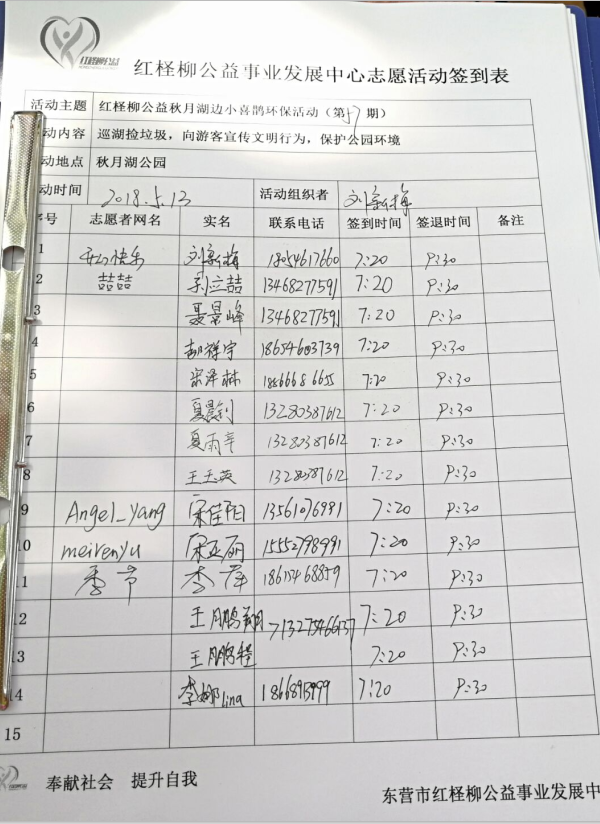 红柽柳公益
红柽柳公益事业发展中心志愿活动签到表
活动主题 红柽柳公益秋月湖边小喜鹊环保活动（第57期）
动内容 巡湖捡垃圾，向游客宣传文明行为，保护公园环境
动地点 秋月湖公园
动时间 2018.5.13 活动组织者 刘新梅
序号 志愿者网名 实名 联系电话 签到时间 签退时间 备注
1 快乐 刘新梅 18054617660 7:20 9:30
2 喆喆 刘立喆 13468277591 7:20 9:30
3 聂景峰 13468277591 7:20 9:30
4 胡祥宇 18654603739 7:20 9:30
5 宋泽林 7:20 9:30
6 夏 13280387612 7:20 9:30
7 夏雨辛 13280387612 7:20 9:30
8 王玉英 13280387612 7:20 9:30
9 Angel_yang 宋佳阳 13561076991 7:20 9:30
10 meirenyu 宋亚丽 15552798991 7:20 9:30
11 季节 李萍 7:20 9:30
12 王鹏翔 7:20 9:30
13 王鹏程 7:20 9:30
14 李娜 lina 7:20 9:30
15
奉献社会 提升自我
东营市红柽柳公益事业发展中